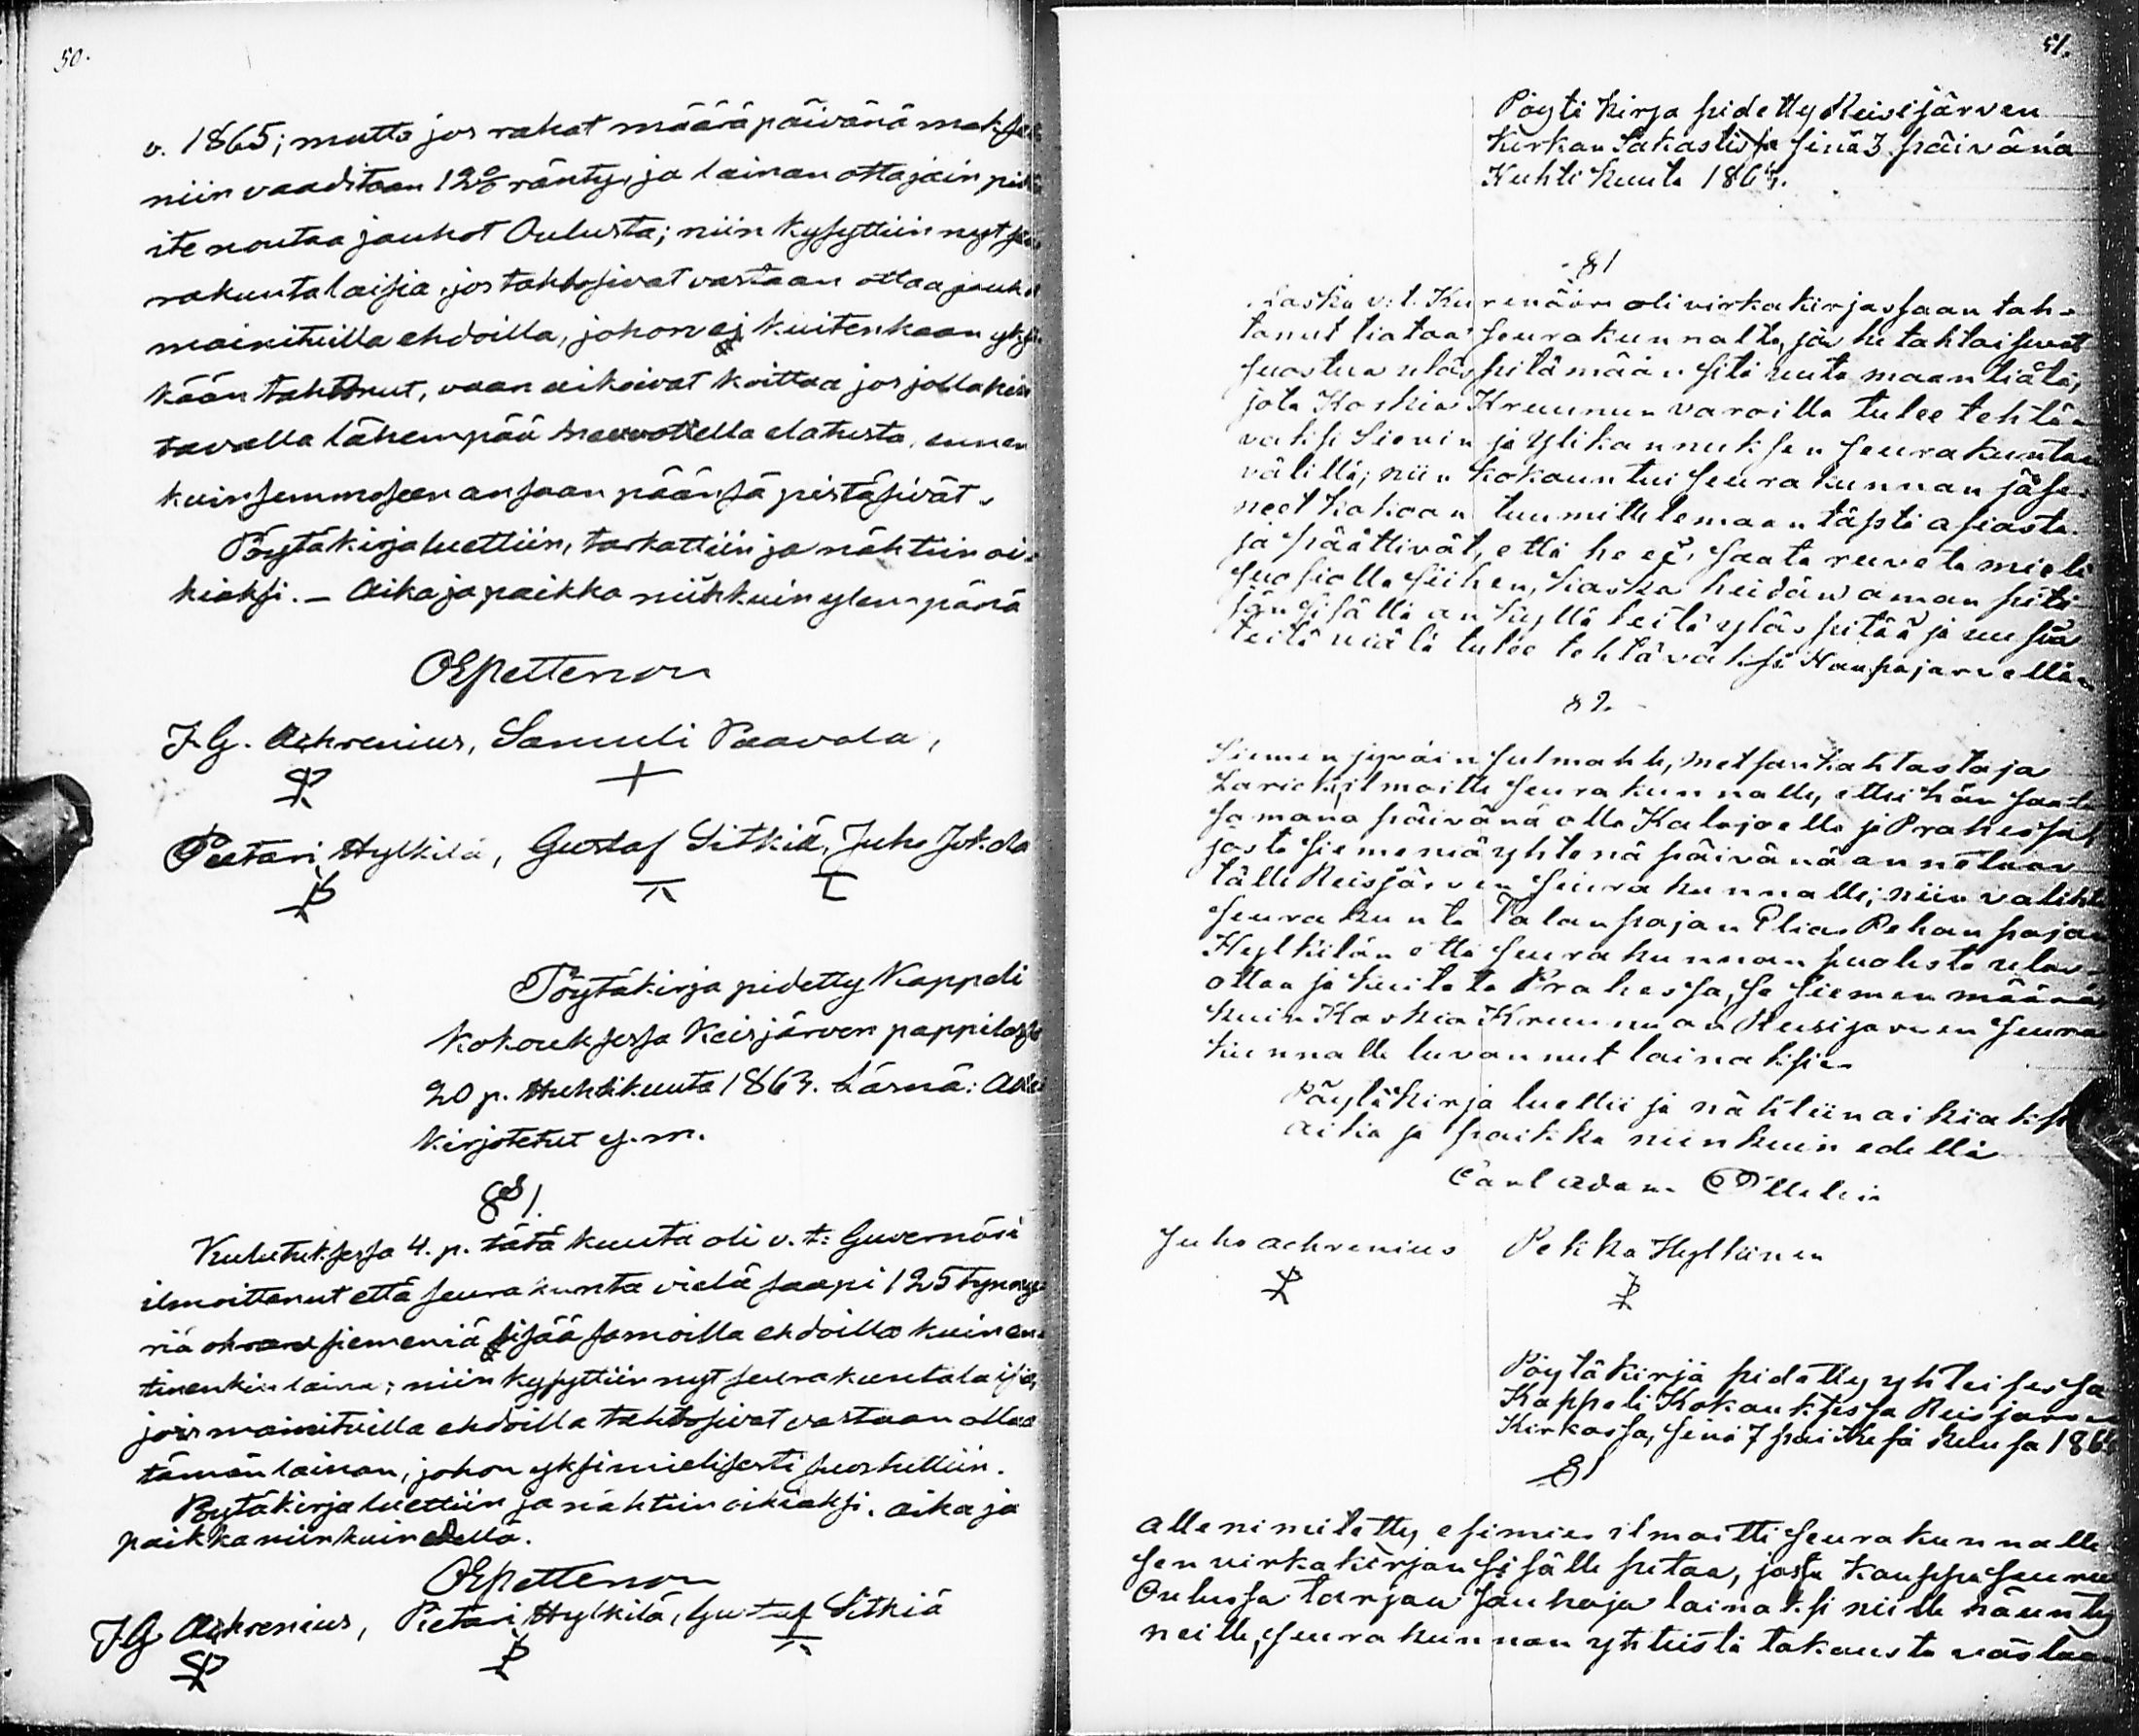 50.
v. 1865; mutta jos rahat määräpäivänä maksa
niin vaaditaan 12% ränty, ja lainan ottajain pi
ite noutaa jauhot Oulusta; niin kysyttiin nyt seu
rakuntalaisia, jos tahtosivat vastaan ottaa jauho
mainituilla ehdoilla, johon ej kuitenkaan yksi
kään tahtonut, vaan aikoivat koittaa jos jollakin
tavalla lähempää elatusta, ennen
kuin semmoseen ansaan päänsä pistäsivät.
Pöytäkirja luettiin, tarkattiin ja nähtiin oi-
kiaksi. – Aika ja paikka niinkuin ylempänä
OEPettersson
J.G. Achrenius, Samuli Paavola,
Pietari Hylkilä, Gustaf Sitkiä, Juho Jokela
Pöytäkirja pidetty Kappeli
kokouksessa Reisjärven pappilassa
20 p. Huhtikuuta 1863. Läsnä: Alle
kirjotetut y.m.
§ 1.
Kulutuksessa 4. p. tätä kuuta oli v. t: Guvernöri
ilmoittanut että seurakunta vielä saapi 125 tynny-
riä ohran siemeniä lisää samoilla ehdoilla kuin en-
tinenkin laina; niin kysyttiin nyt seurakuntalaisia,
jos mainituilla ehdoilla tahtosivat vastaan ottaa
tämän lainan, johon yksimielisesti suostuttiin.
Pöytäkirja luettiin ja nähtiin oikiaksi. aika ja
paikka niinkuin edellä.
OEPettersson
J.G. Achrenius, Pietari Hylkilä, Gustaf Sitkiä
51.
Pöytäkirja pidetty Reisijärven
Kirkan Sakastissa sinä 3 päivänä
Huhtikuuta 1864.
§ 1
Koska v. t. Kuvernööri oli virkakirjassaan tah-
tonut tiataa seurakunnalta, jos he tahtoisivat
suostua ylös pitämään sitä uuta maantiätä,
jota Koskia Kruunun varoilla tulee tehtä-
väksi Sievin ja Ylikannuksen seurakuntan
välillä; niin kokauntui seurakunnan jäse-
net kakoan tuumittelemaan täpsti asiasta.
ja päättivät, että he ei saata ruveta mieli
suosialla siihen, koska heidän aman pitä-
jän sisällä an kyllä teitä yläs pitää ja uusia
teitä viälä tulee tehtäväksi Haapajarvellä.
§ 2.
Siemenjyväin
Larich, ilmoitti seurakunnalle, ettei hän saata
samana päivänä olla Kalajoella ja Prahessa,
josta siemeniä yhtenä päivänä annetaan
tälle Reisjärven seurakunnalle; niin valihti
seurakunta Talanpajan Elias Pekanpajan
Hylkilän että seurakunnan puolesta ulos-
ottaa ja kuitata Prahessa, se siemen määrä,
kuin Koskia Kruunu an Reisijarven seura
kunnalle luvannut lainaksi.
Pöytäkirja luettii ja nähtiin aikiaksi
aika ja paikka niinkuin edellä
Carl Adam
Juho Achrenius Pekka Hylkinen
Pöytäkirja pidetty yhteisessa
Kappeli Kokauksessa Reisjarven
Kirkassa, sinä 7 päi Kesä Kulusa 186
§ 1
Allenimitetty esimies ilmoitti seurakunnalle
sen virkakirjan sisälle pitaa, josta Kauppaseura
Oulussa tarjaa Jauhoja lainaksi niille
neille, seurakunnan yhteistä takausta vastaa